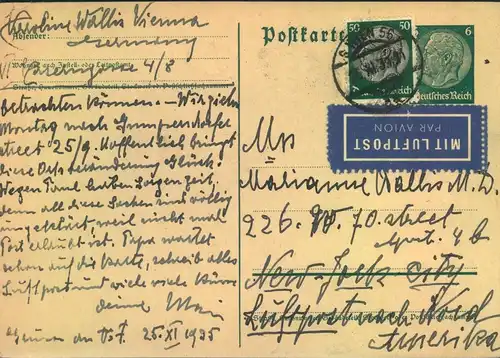 Karoline Wallis Vienna
Absender:
Germany
Wohnort, auch Zustell- oder Leitpostamt
VI 4/8
Straße, Hausnummer, Gebäudeteil, Stockwerk od. Postschließfachnummer
betrachten können. – Wir ziehen
Montag nach Gumpendorfer
street 25/9. Hoffentlich bringt
diese Ortsveränderung Glück!
Wegen haben Sorgen Zeit,
denn all diese Sachen sind völlig
ungeklärt, weil nicht mal
Post erlaubt ist. Papa wartet
schon auf die Karte, schreib alles
Luftpost und viele viele Küsse
deine
Postkarte
50
50
Deutsches Reich
6
Deutsches Reich
WIEN 56
MIT LUFTPOST
PAR AVION
Mrs
Marianne Wallis M.D.
226 W. 70. street
Apart. 4 b
New-York City
Luftpost nach Nord
Amerika